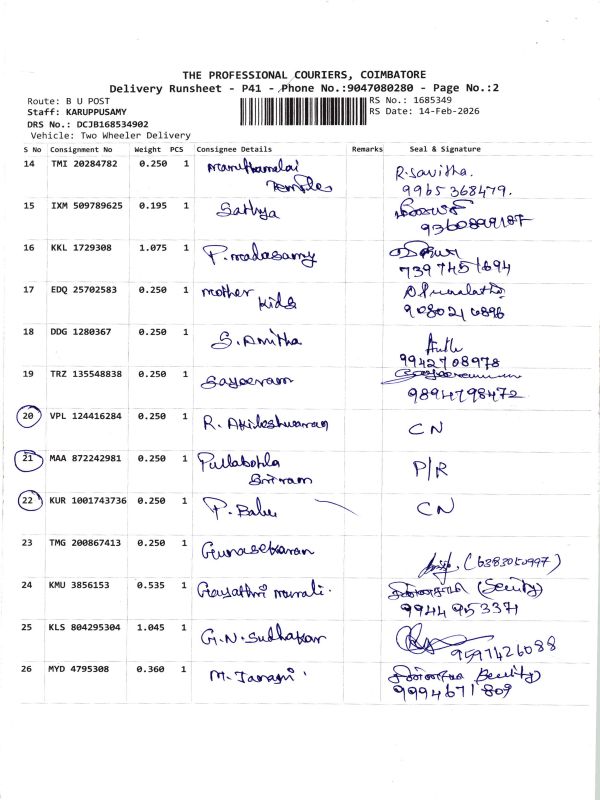 THE PROFESSIONAL COURIERS, COIMBATORE
Delivery Runsheet - P41 - Phone No.:9047080280 - Page No.:2
Route: B U POST
RS No.: 1685349
Staff: KARUPPUSAMY
RS Date: 14-Feb-2026
DRS No.: DCJB168534902
Vehicle: Two Wheeler Delivery
S No Consignment No Weight PCS Consignee Details Remarks Seal & Signature
14 TMI 20284782 0.250 1 Maruthamalai R.Savitha.
Temple 9965 368479.
15 IXM 509789625 0.195 1 Sathya
9360899187
16 KKL 1729308 1.075 1 P.madasamy
739 7451694
17 EDQ 25702583 0.250 1 mother
Kids 9080210896
18 DDG 1280367 0.250 1 S.Amitha
9942708978
19 TRZ 135548838 0.250 1 Sayeeram
9894798472
20 VPL 124416284 0.250 1 R. Akileshwaran CN
21 MAA 872242981 0.250 1 Pullabotla P/R
Sriram
22 KUR 1001743736 0.250 1 P. Babu CN
23 TMG 200867413 0.250 1 Gunasekaran
(6383050997)
24 KMU 3856153 0.535 1 Gayathri murali. (Secuity)
99449 53371
25 KLS 804295304 1.045 1 G.N.Sudhakar
9597426088
26 MYD 4795308 0.360 1 M.Janagi (Secuity)
9994671809